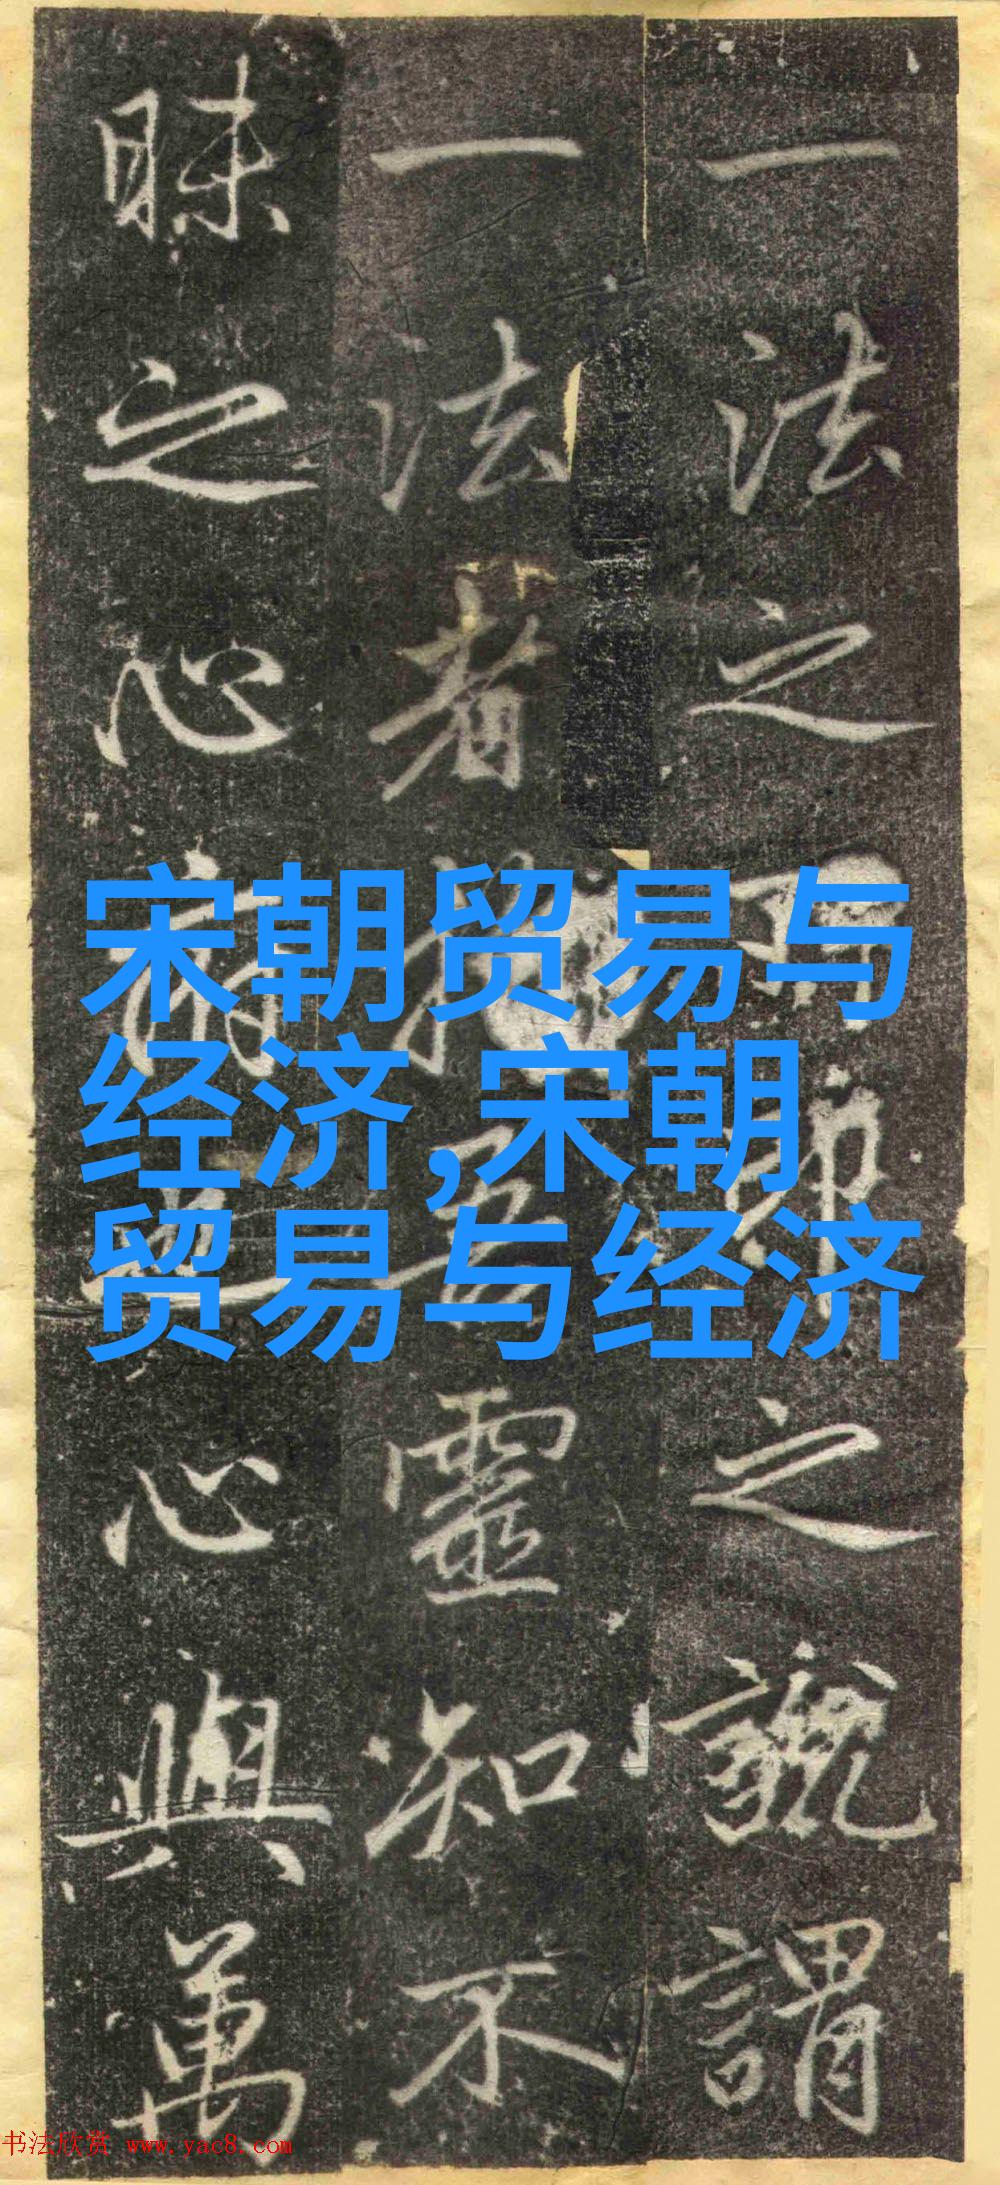 一法之之謂
一法者靈知不
昧之心心與萬
宋朝贸易与
经济,宋朝
贸易与经济
书法欣赏 www.yac8.com